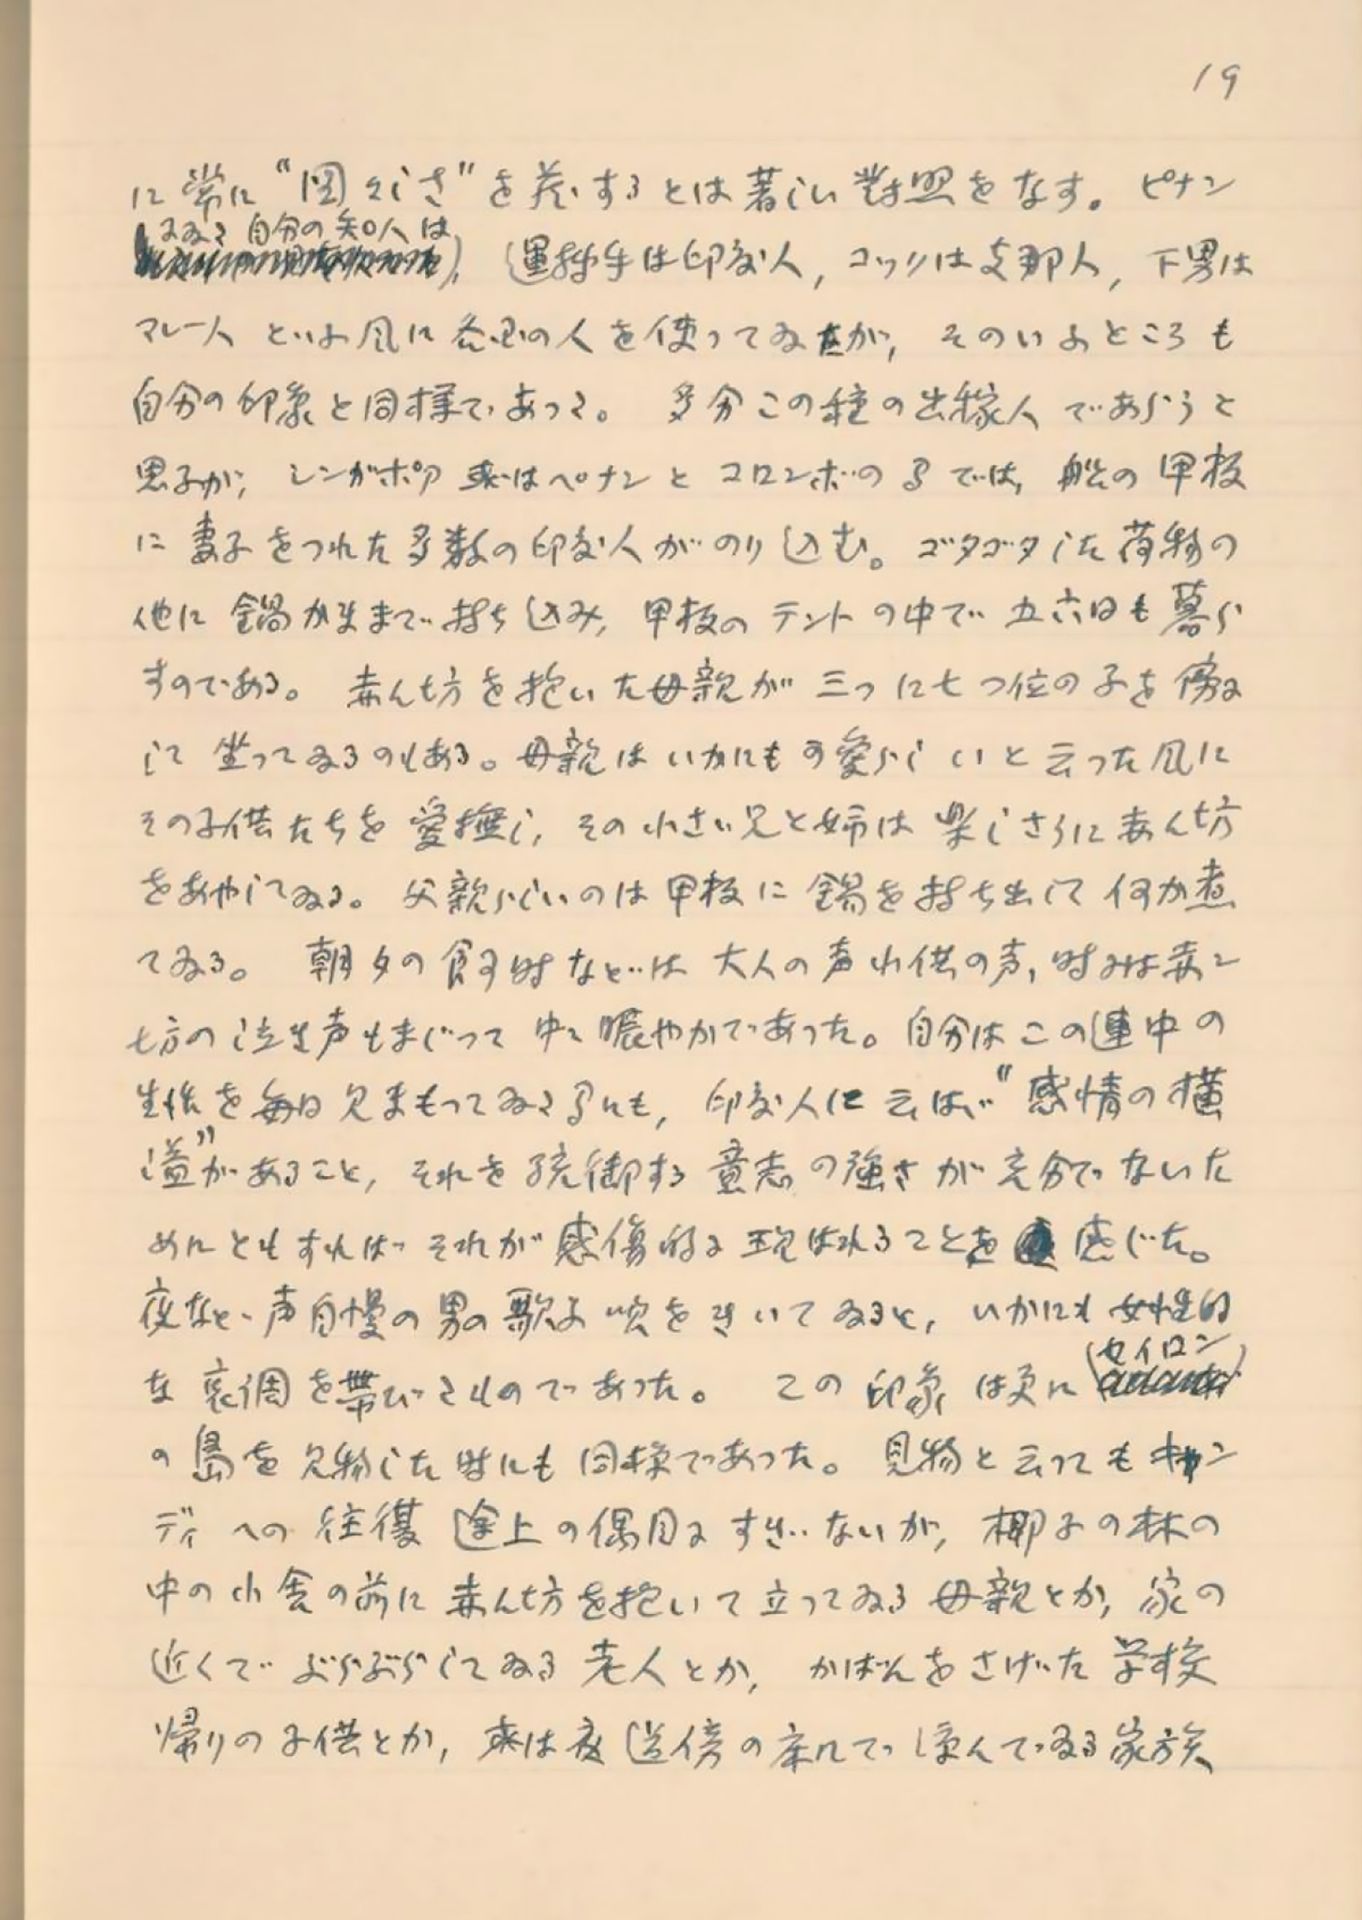 19
に常に“図々しさ”を感ずるとは著しい対照をなす。ピナン
にゐる自分の知人は
運転手は印度人，コックは支那人，下男は
マレー人といふ風に各国の人を使ってゐたが，そのいふところも
自分の印象と同様であった。多分この種の出稼人であらうと
思ふが，シンガポア或はペナンとコロンボの間では，船の甲板
に妻子をつれた多数の印度人がのり込む。ゴタゴタした荷物の
他に鍋かままで持ち込み，甲板のテントの中で五六日も暮ら
すのである。赤ん坊を抱いた母親が三つに七つ位の子を傍に
して坐ってゐるのもある。母親はいかにも可愛らしいと云った風に
その子供たちを愛撫し，その小さい兄と姉は楽しさうに赤ん坊
をあやしてゐる。父親らしいのは甲板に鍋を持ち出して何か煮
てゐる。朝夕の食事時などは大人の声小供の声，時には赤ン
坊の泣き声もまじって中々賑やかであった。自分はこの連中の
生活を毎日見まもってゐる間にも，印度人に云はゞ“感情の横
溢”があること，それを統御する意志の強さが充分でないた
めにともすればそれが感傷的に現はれることを感じた。
夜など声自慢の男の歌ふ唄をきいてゐると，いかにも女性的
な哀調を帯びたものであった。この印象は更に（セイロン）
の島を見物した時にも同様であった。見物と云ってもキャン
ディへの往復途上の偶目にすぎないが，椰子の林の
中の小舎の前に赤ん坊を抱いて立ってゐる母親とか，家の
近くでぶらぶらしてゐる老人とか，かばんをさげた学校
帰りの子供とか，或は夜道傍の床几で涼んでゐる家族